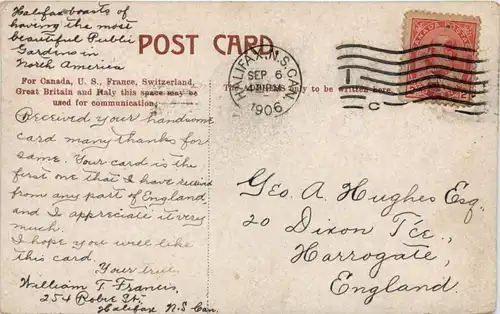 Halifax boasts of
having the most
beautiful Public
Gardens in
North America
POST CARD
For Canada, U. S., France, Switzerland,
Great Britain and Italy this space may be
used for communication.
only to be written here.
HALIFAX, N.S. CAN.
SEP 6
PM
1906
Received your handsome
card many thanks for
same. Your card is the
first one that I have received
from any part of England
and I appreciate it very
much.
I hope you will like
this card.
Your true,
William T. Francis,
254 Robie St,
Halifax N.S Can.
Geo. A. Hughes Esq.
20 Dixon Tce.,
Harrogate,
England.